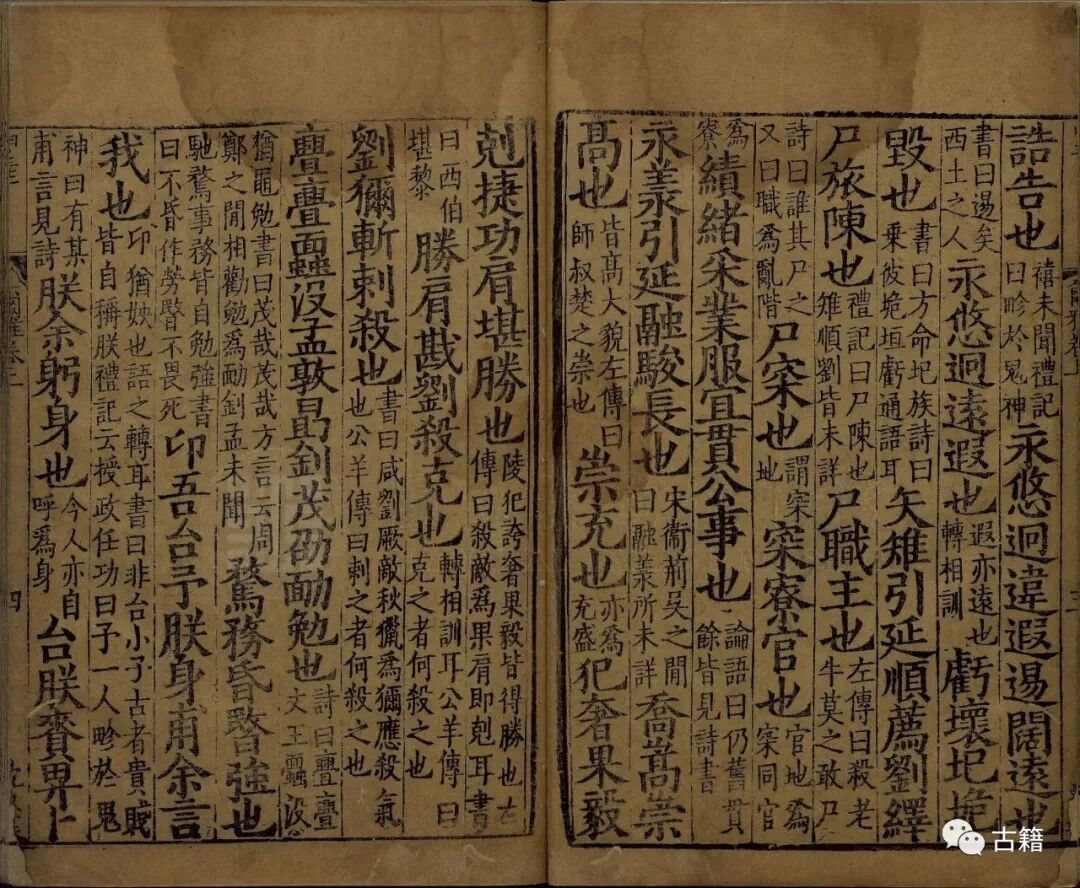 誥告也禧未聞禮記曰畛於鬼神永悠迥違遐逷闊遠也
書曰逷矣西土之人永悠迥遠遐也遐亦遠也轉相訓虧壞圮垝
毀也書曰方命圮族詩曰乗彼垝垣虧通語耳矢雉引延順薦劉繹
尸旅陳也禮記曰尸陳也雉順劉皆未詳尸職主也左傳曰殺老牛莫之敢尸
詩曰誰其尸之又曰職爲亂階尸寀也謂寀地寀寮官也官地爲寀同官
爲寮績緒采業服宜貫公事也論語曰仍舊貫餘皆見詩書
永羕引延融駿長也宋衞荊吳之閒曰融羕所未詳喬嵩崇
髙也皆髙大貌左傳曰師叔楚之崇也崇充也亦爲充盛犯奢果毅
剋捷功肩堪勝也陵犯誇奢果毅皆得勝也左傳曰殺敵爲果肩即剋耳書
曰西伯堪黎勝肩戡劉殺克也轉相訓耳公羊傳曰克之者何殺之也
劉獮斬刺殺也書曰咸劉厥敵秋獵爲獮應殺氣也公羊傳曰刺之者何殺之也
亹亹蠠没孟敦勗釗茂劭勔勉也詩曰亹亹文王蠠没
猶黽勉書曰茂哉茂哉方言云周鄭之閒相勸勉爲勔釗孟未聞騖務昏暋強也
馳騖事務皆自勉強書曰不昏作勞暋不畏死卬吾台予朕身甫余言
我也卬猶姎也語之轉耳書曰非台小子古者貴賤皆自稱朕禮記云授政任功曰予一人畛於鬼
神曰有某甫言見詩朕余躬身也今人亦自呼爲身台朕賚畀卜
四
古籍